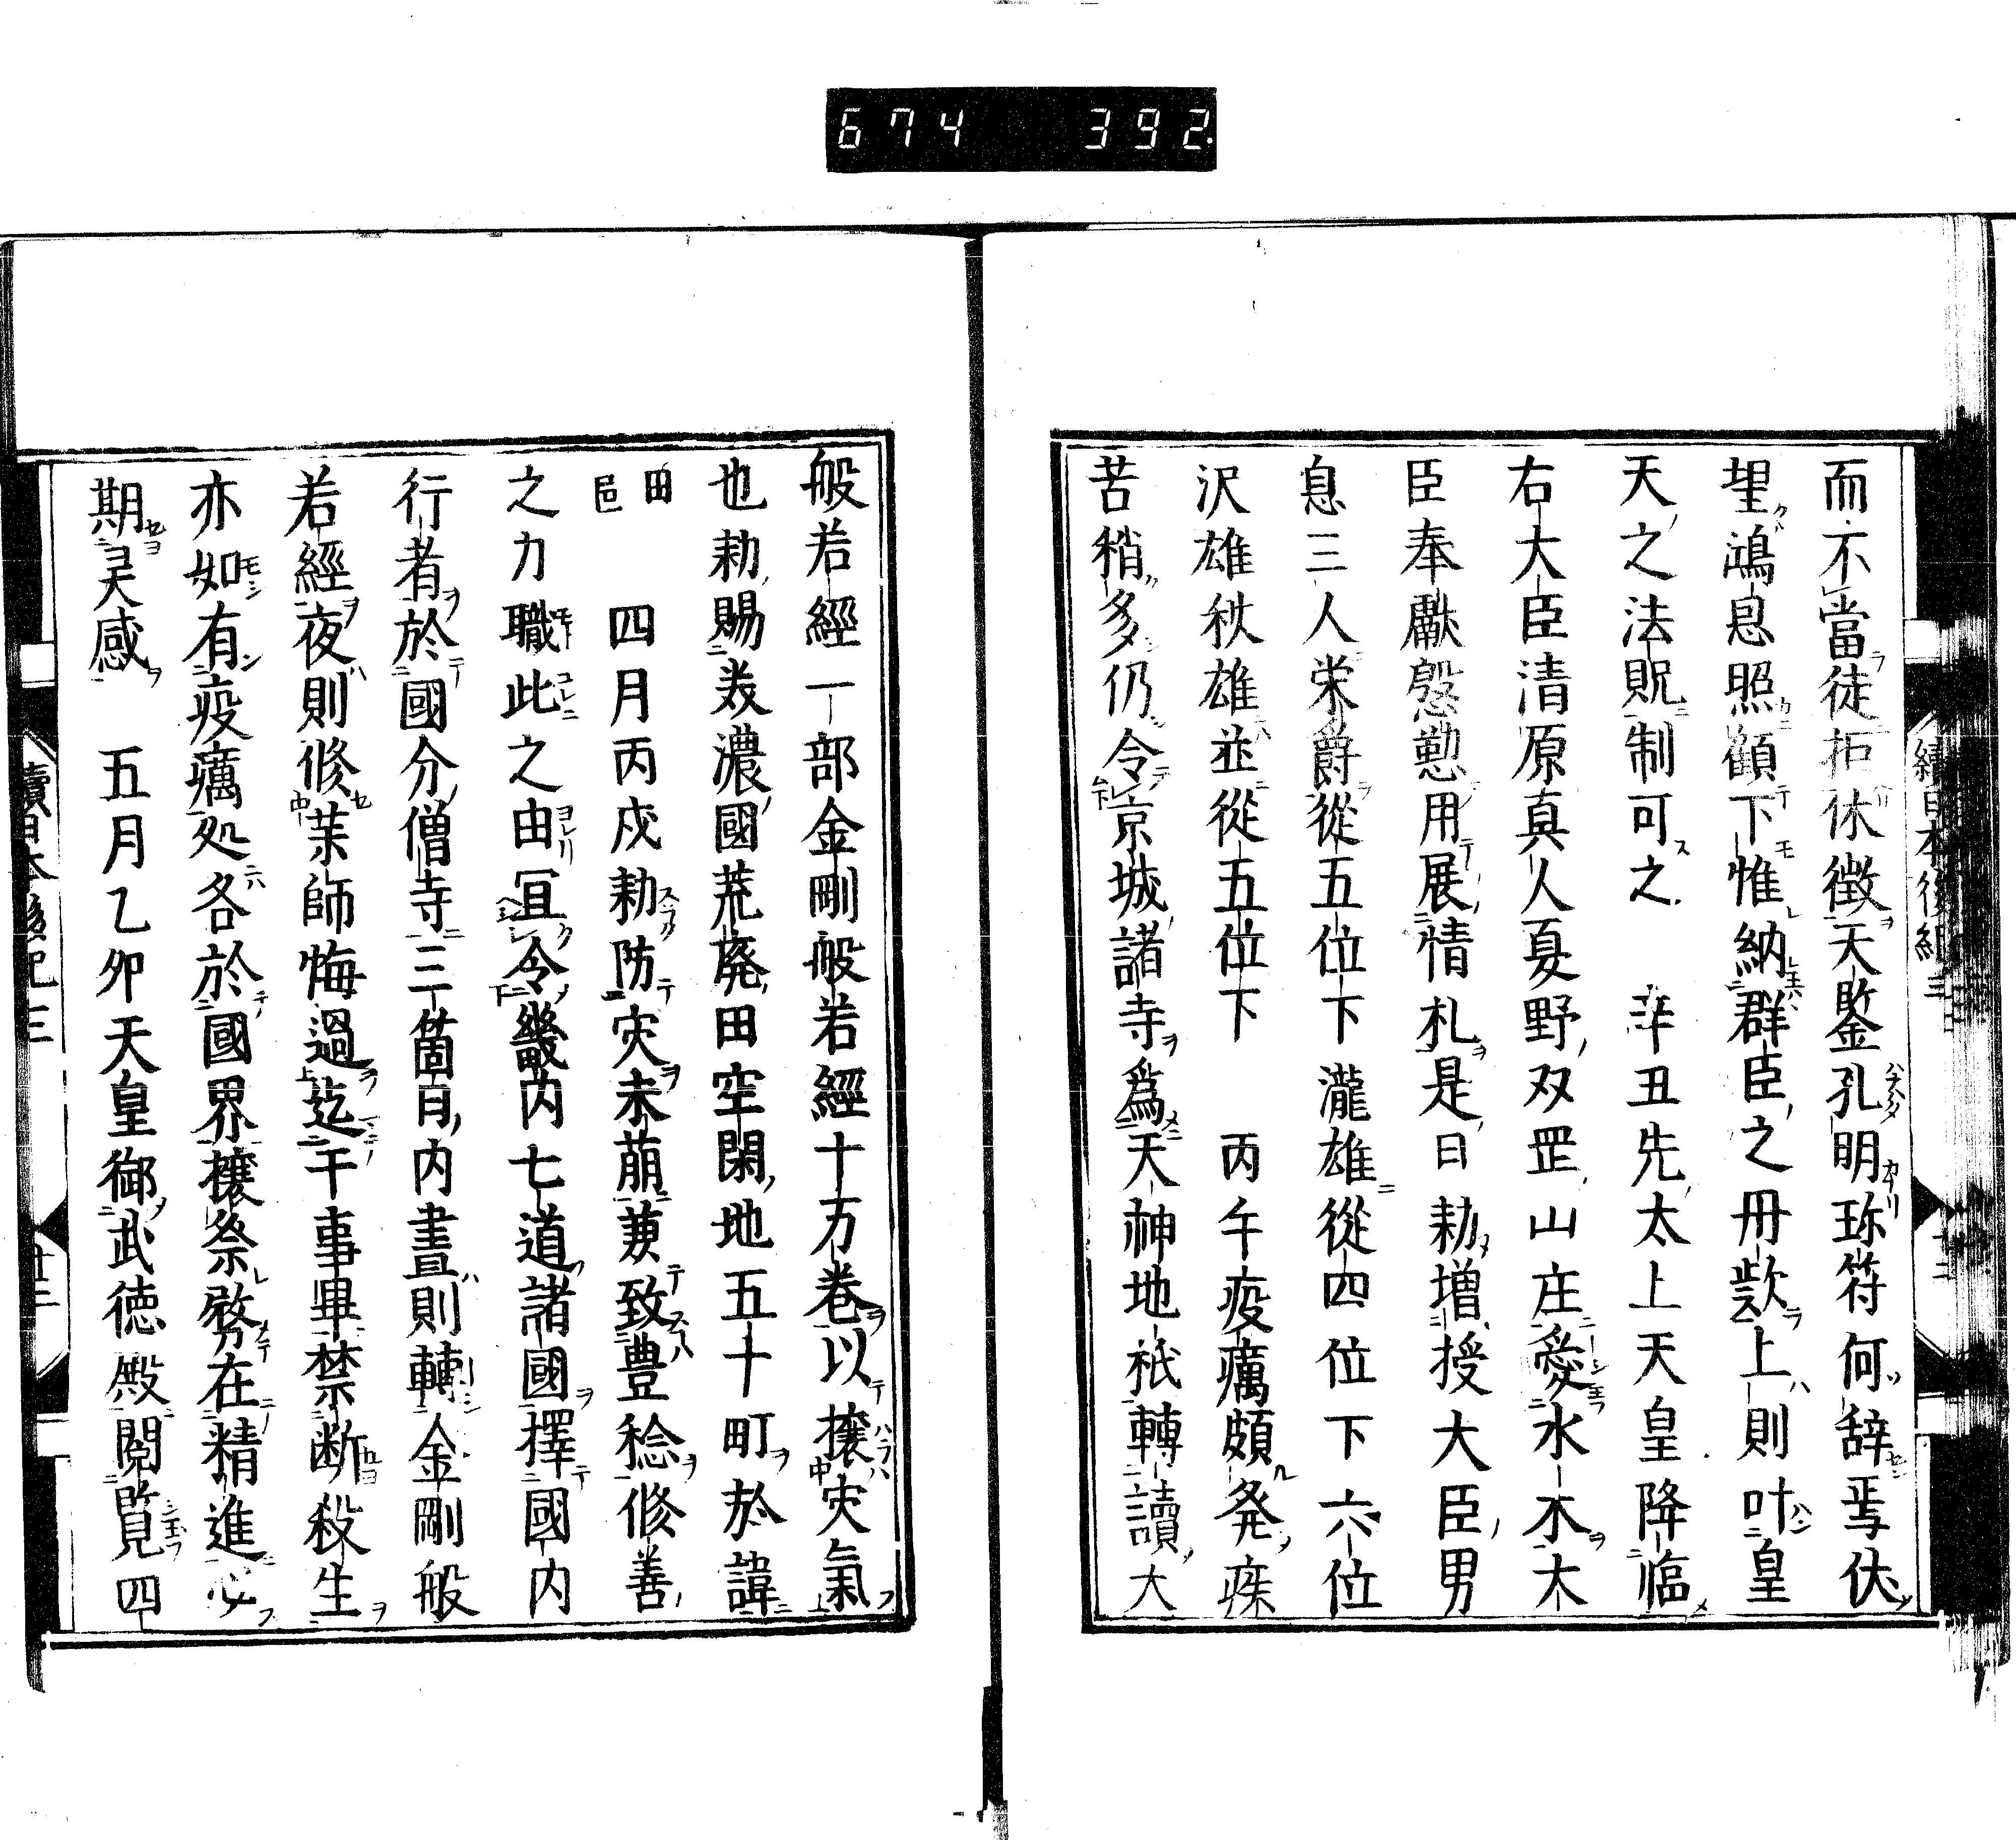 674 392
續日本後紀三
而不當徒拒休徴天鑒孔明珎符何辞焉伏
望鴻恩照顧下惟納群臣之冊歎上則叶皇
天之法貺制可之 辛丑先太上天皇降臨
右大臣清原真人夏野双罡山庄愛水木大
臣奉獻慇懃用展情札是日勅増授大臣男
息三人栄爵從五位下瀧雄從四位下六位
沢雄秋雄並從五位下 丙午疫癘頗発疾
苦稍多仍令京城諸寺爲天神地祇轉讀大
般若經一部金剛般若經十万巻以攘灾氣
也勅賜羙濃國荒廃田空閑地五十町於諱
田邑 四月丙戌勅防灾未萠兼致豊稔修善
之力職此之由冝令畿内七道諸國擇國内
行者於國分僧寺三箇日内晝則轉金剛般
若經夜則修藥師悔過迄于事畢禁断殺生
亦如有疫癘処各於國界攘祭務在精進必
期灵感 五月乙夘天皇御武徳殿閲覧四
續日本後紀三
廿三